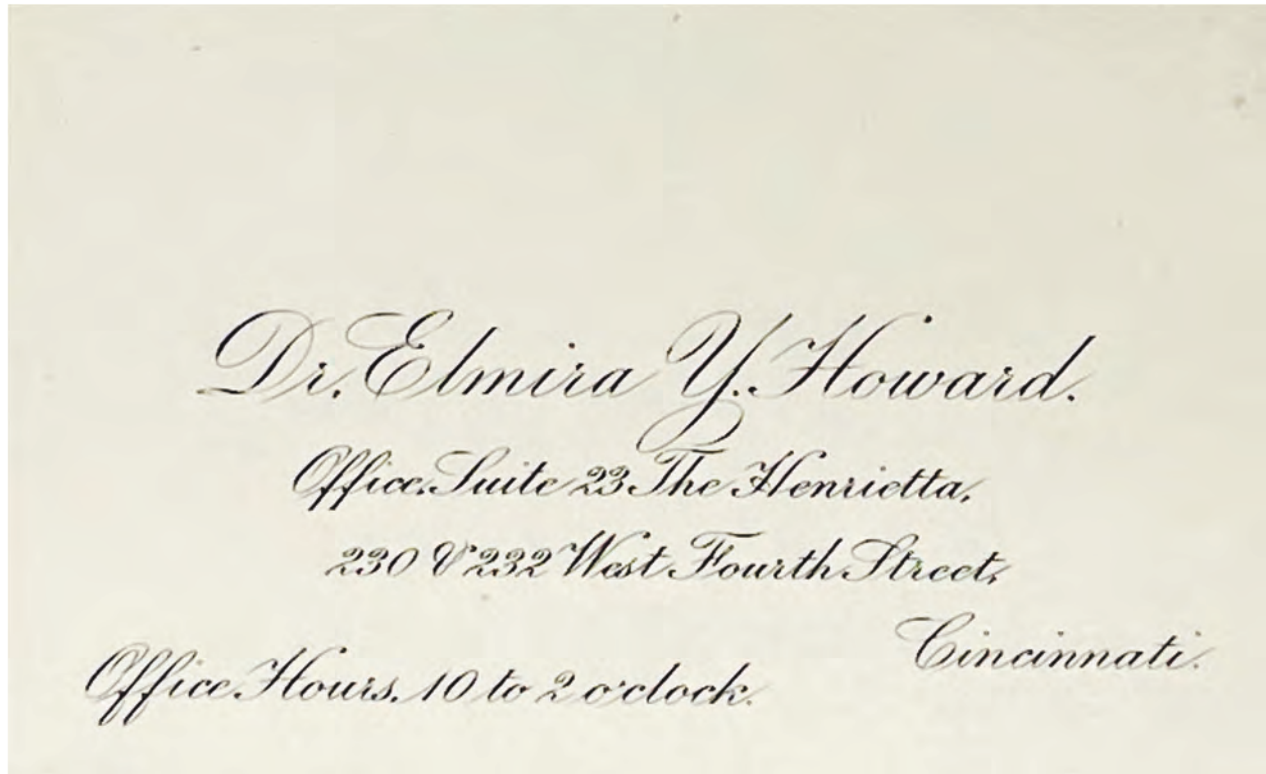 Dr. Elmira Y. Howard.
Office, Suite 23 The Henrietta,
230 & 232 West Fourth Street,
Cincinnati.
Office Hours, 10 to 2 o'clock.